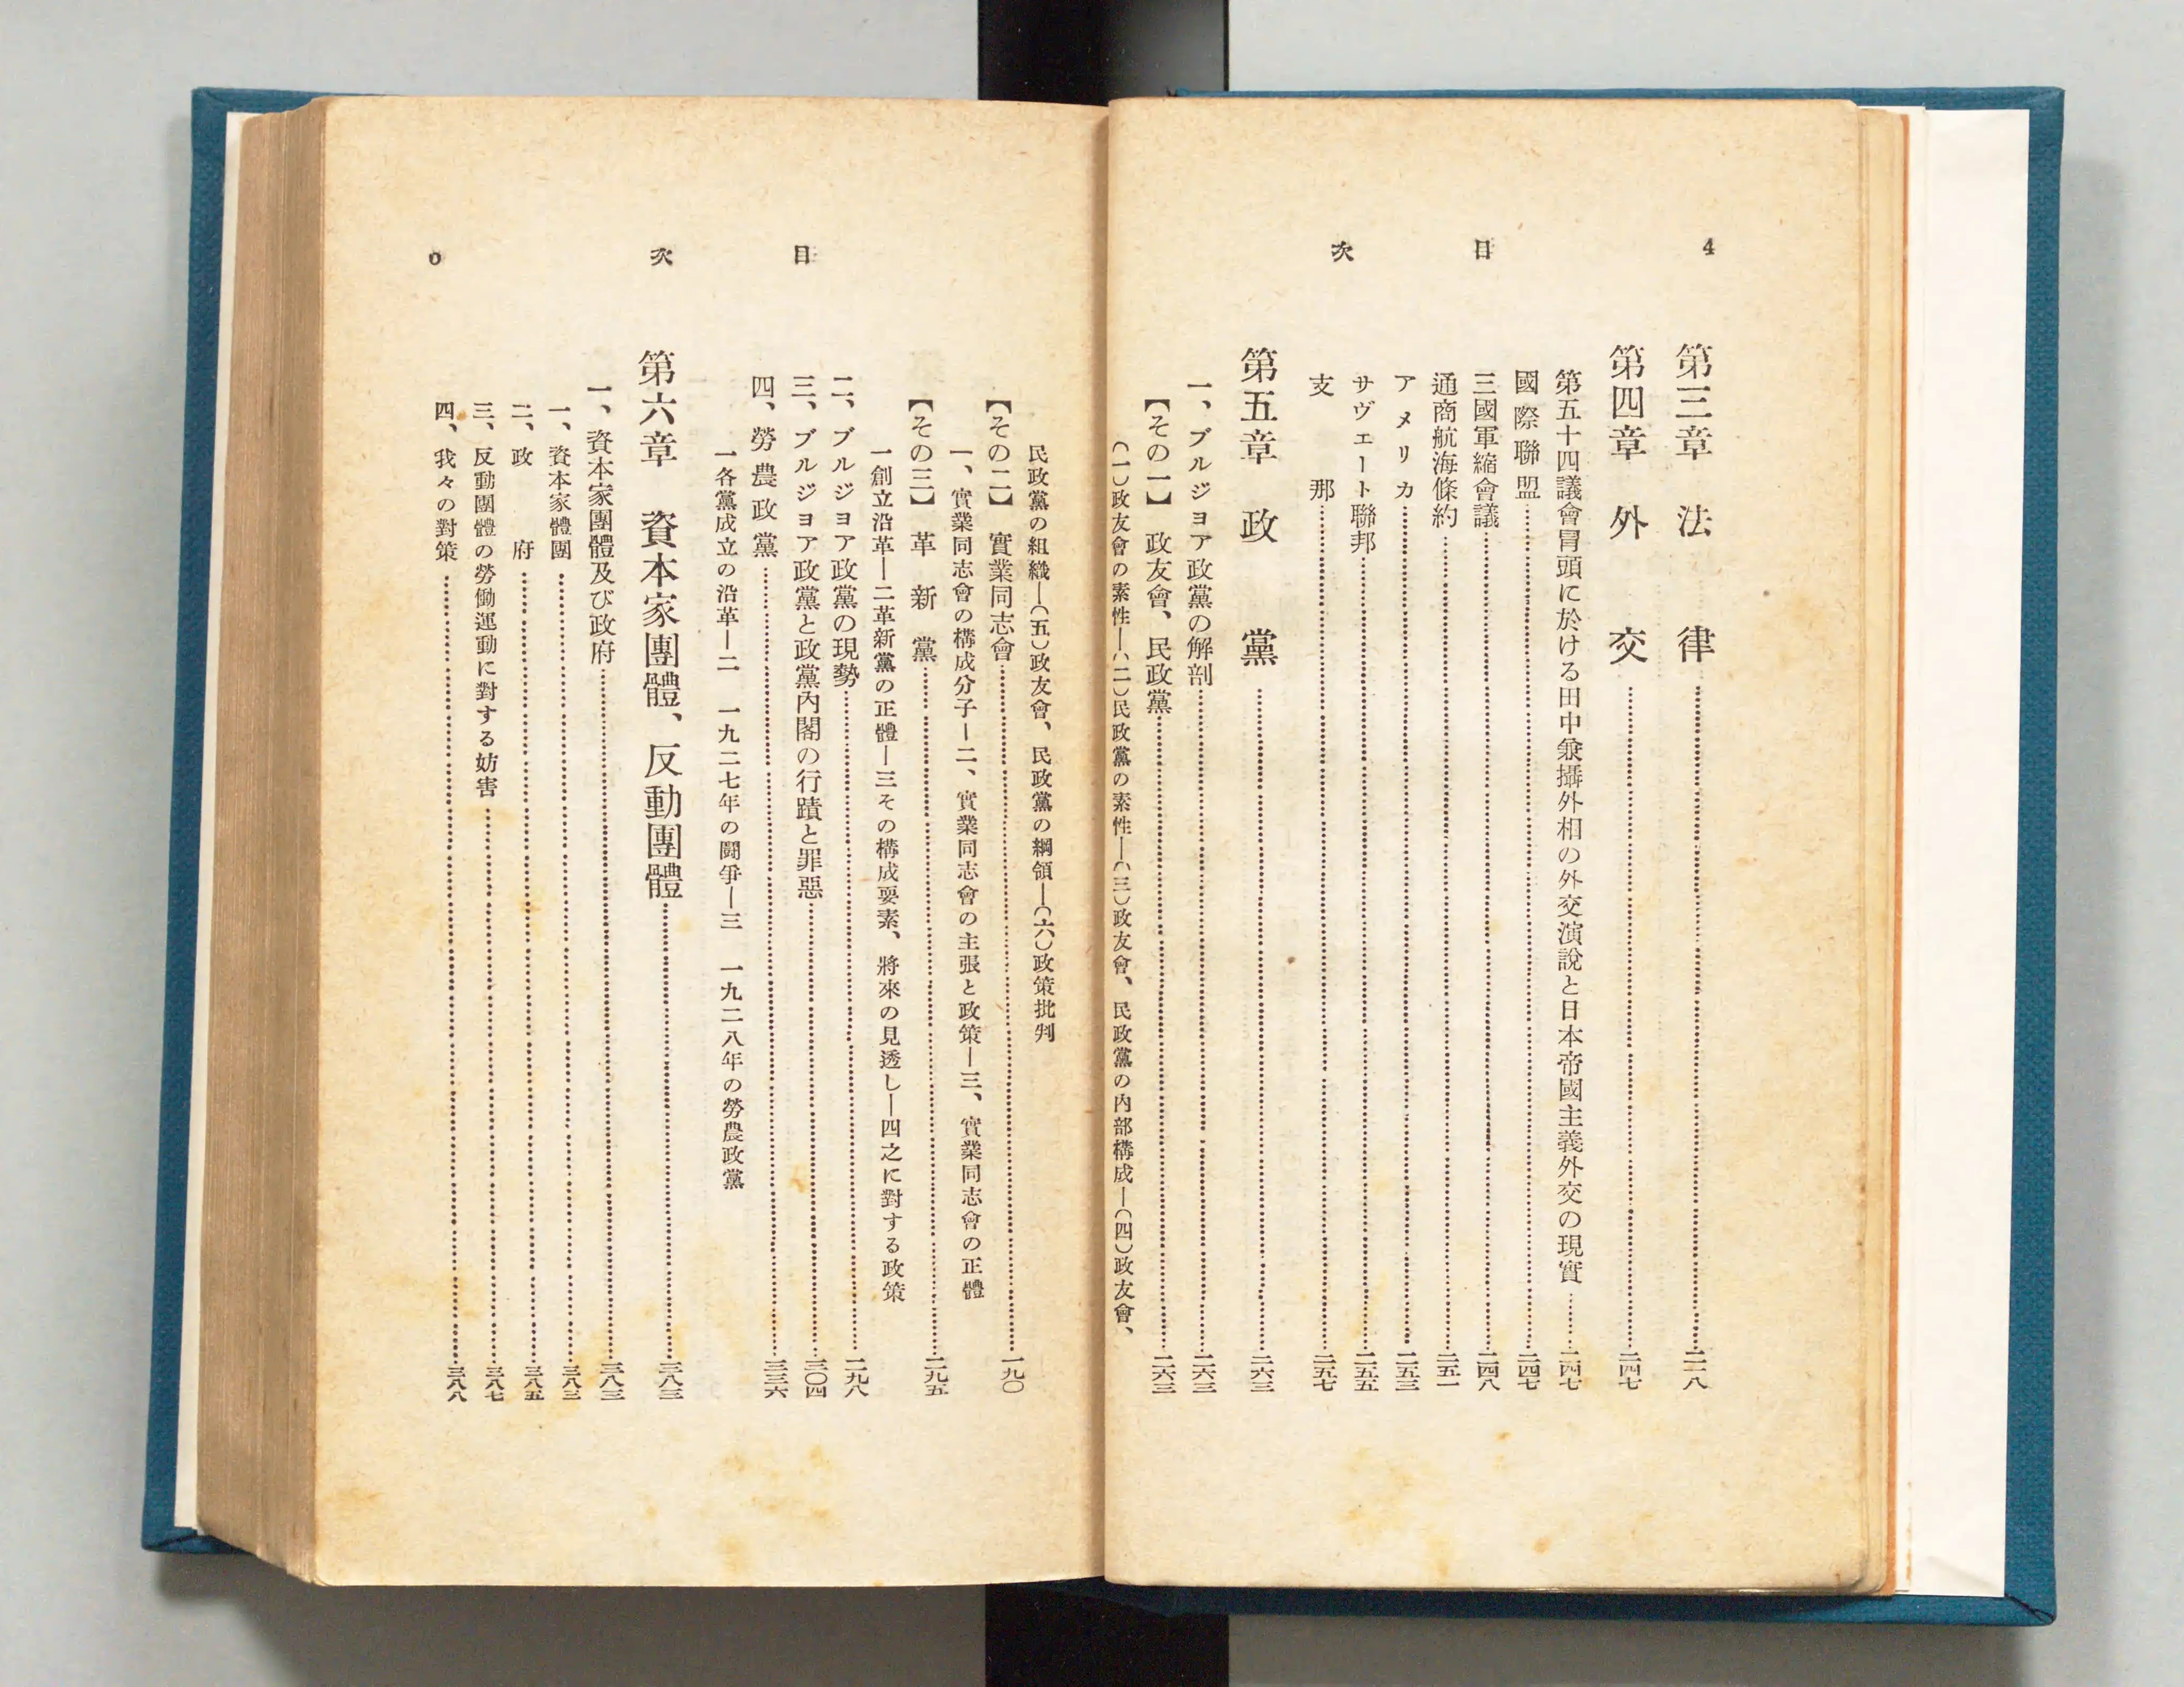 4 目次
第三章 法律……二二八
第四章 外交……二四七
第五十四議會冒頭に於ける田中兼攝外相の外交演說と日本帝國主義外交の現實……二四七
國際聯盟……二四七
三國軍縮會議……二四八
通商航海條約……二五一
アメリカ……二五三
サヴェート聯邦……二五五
支那……二五七
第五章 政黨……二六三
一、ブルジョア政黨の解剖……二六三
【その一】 政友會、民政黨……二六三
(一)政友會の素性―(二)民政黨の素性―(三)政友會、民政黨の內部構成―(四)政友會、
目次
民政黨の組織―(五)政友會、民政黨の綱領―(六)政策批判
【その二】 實業同志會……一九〇
一、實業同志會の構成分子―二、實業同志會の主張と政策―三、實業同志會の正體
【その三】 革新黨……二九五
一創立沿革―二革新黨の正體―三その構成要素、將來の見透し―四之に對する政策
二、ブルジョア政黨の現勢……二九八
三、ブルジョア政黨と政黨內閣の行蹟と罪惡……三〇四
四、勞農政黨……三三六
一各黨成立の沿革―二 一九二七年の鬪爭―三 一九二八年の勞農政黨
第六章 資本家團體、反動團體……三八三
一、資本家團體及び政府……三八三
一、資本家體團……三八三
二、政府……三八五
三、反動團體の勞働運動に對する妨害……三八七
四、我々の對策……三八八